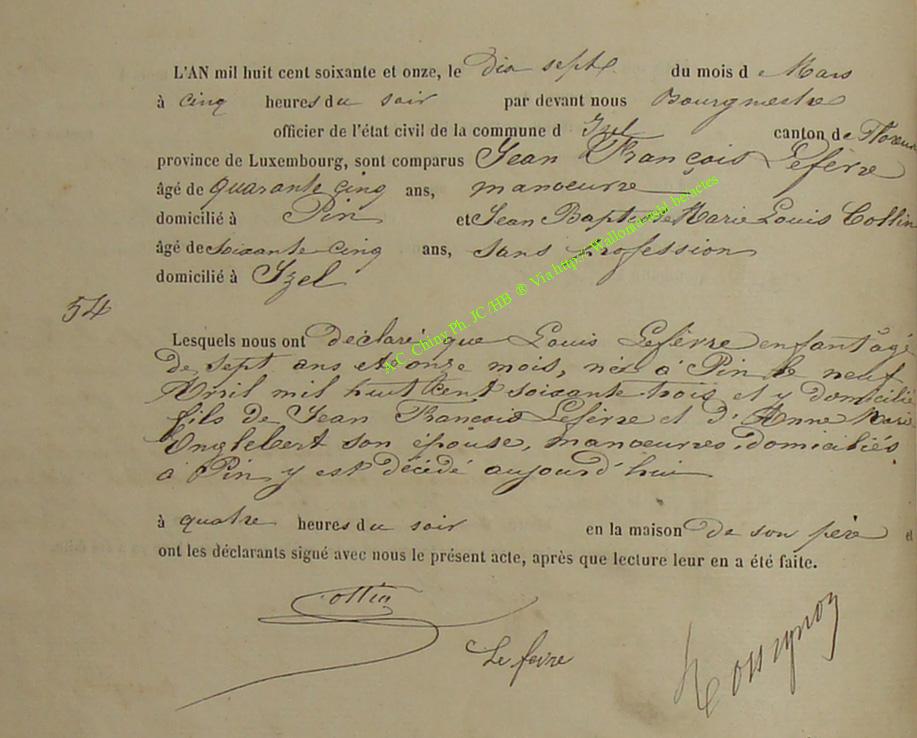 L'AN mil huit cent soixante et onze, le dix sept du mois de Mars
à cinq heures du soir par devant nous Bourgmestre
officier de l'état civil de la commune d'Izel canton de Floren
province de Luxembourg, sont comparus Jean François Lefèvre
âgé de quarante cinq ans, manoeuvre
domicilié à Pin et Jean Baptiste Marie Louis Collin
âgé de soixante cinq ans, sans profession
domicilié à Izel
54
Lesquels nous ont déclaré que Louis Lefèvre enfant âgé
de sept ans et onze mois, né à Pin le neuf
Avril mil huit cent soixante trois et y domicilié
fils de Jean François Lefèvre et d'Anne Marie
Englebert son épouse, manoeuvres, domiciliés
à Pin, y est décédé aujourd'hui
à quatre heures du soir en la maison de son père et
ont les déclarants signé avec nous le présent acte, après que lecture leur en a été faite.
Collin
Lefevre
A.C. Chiny Ph. JC /HB ® Via http://Wallonia
be.actes